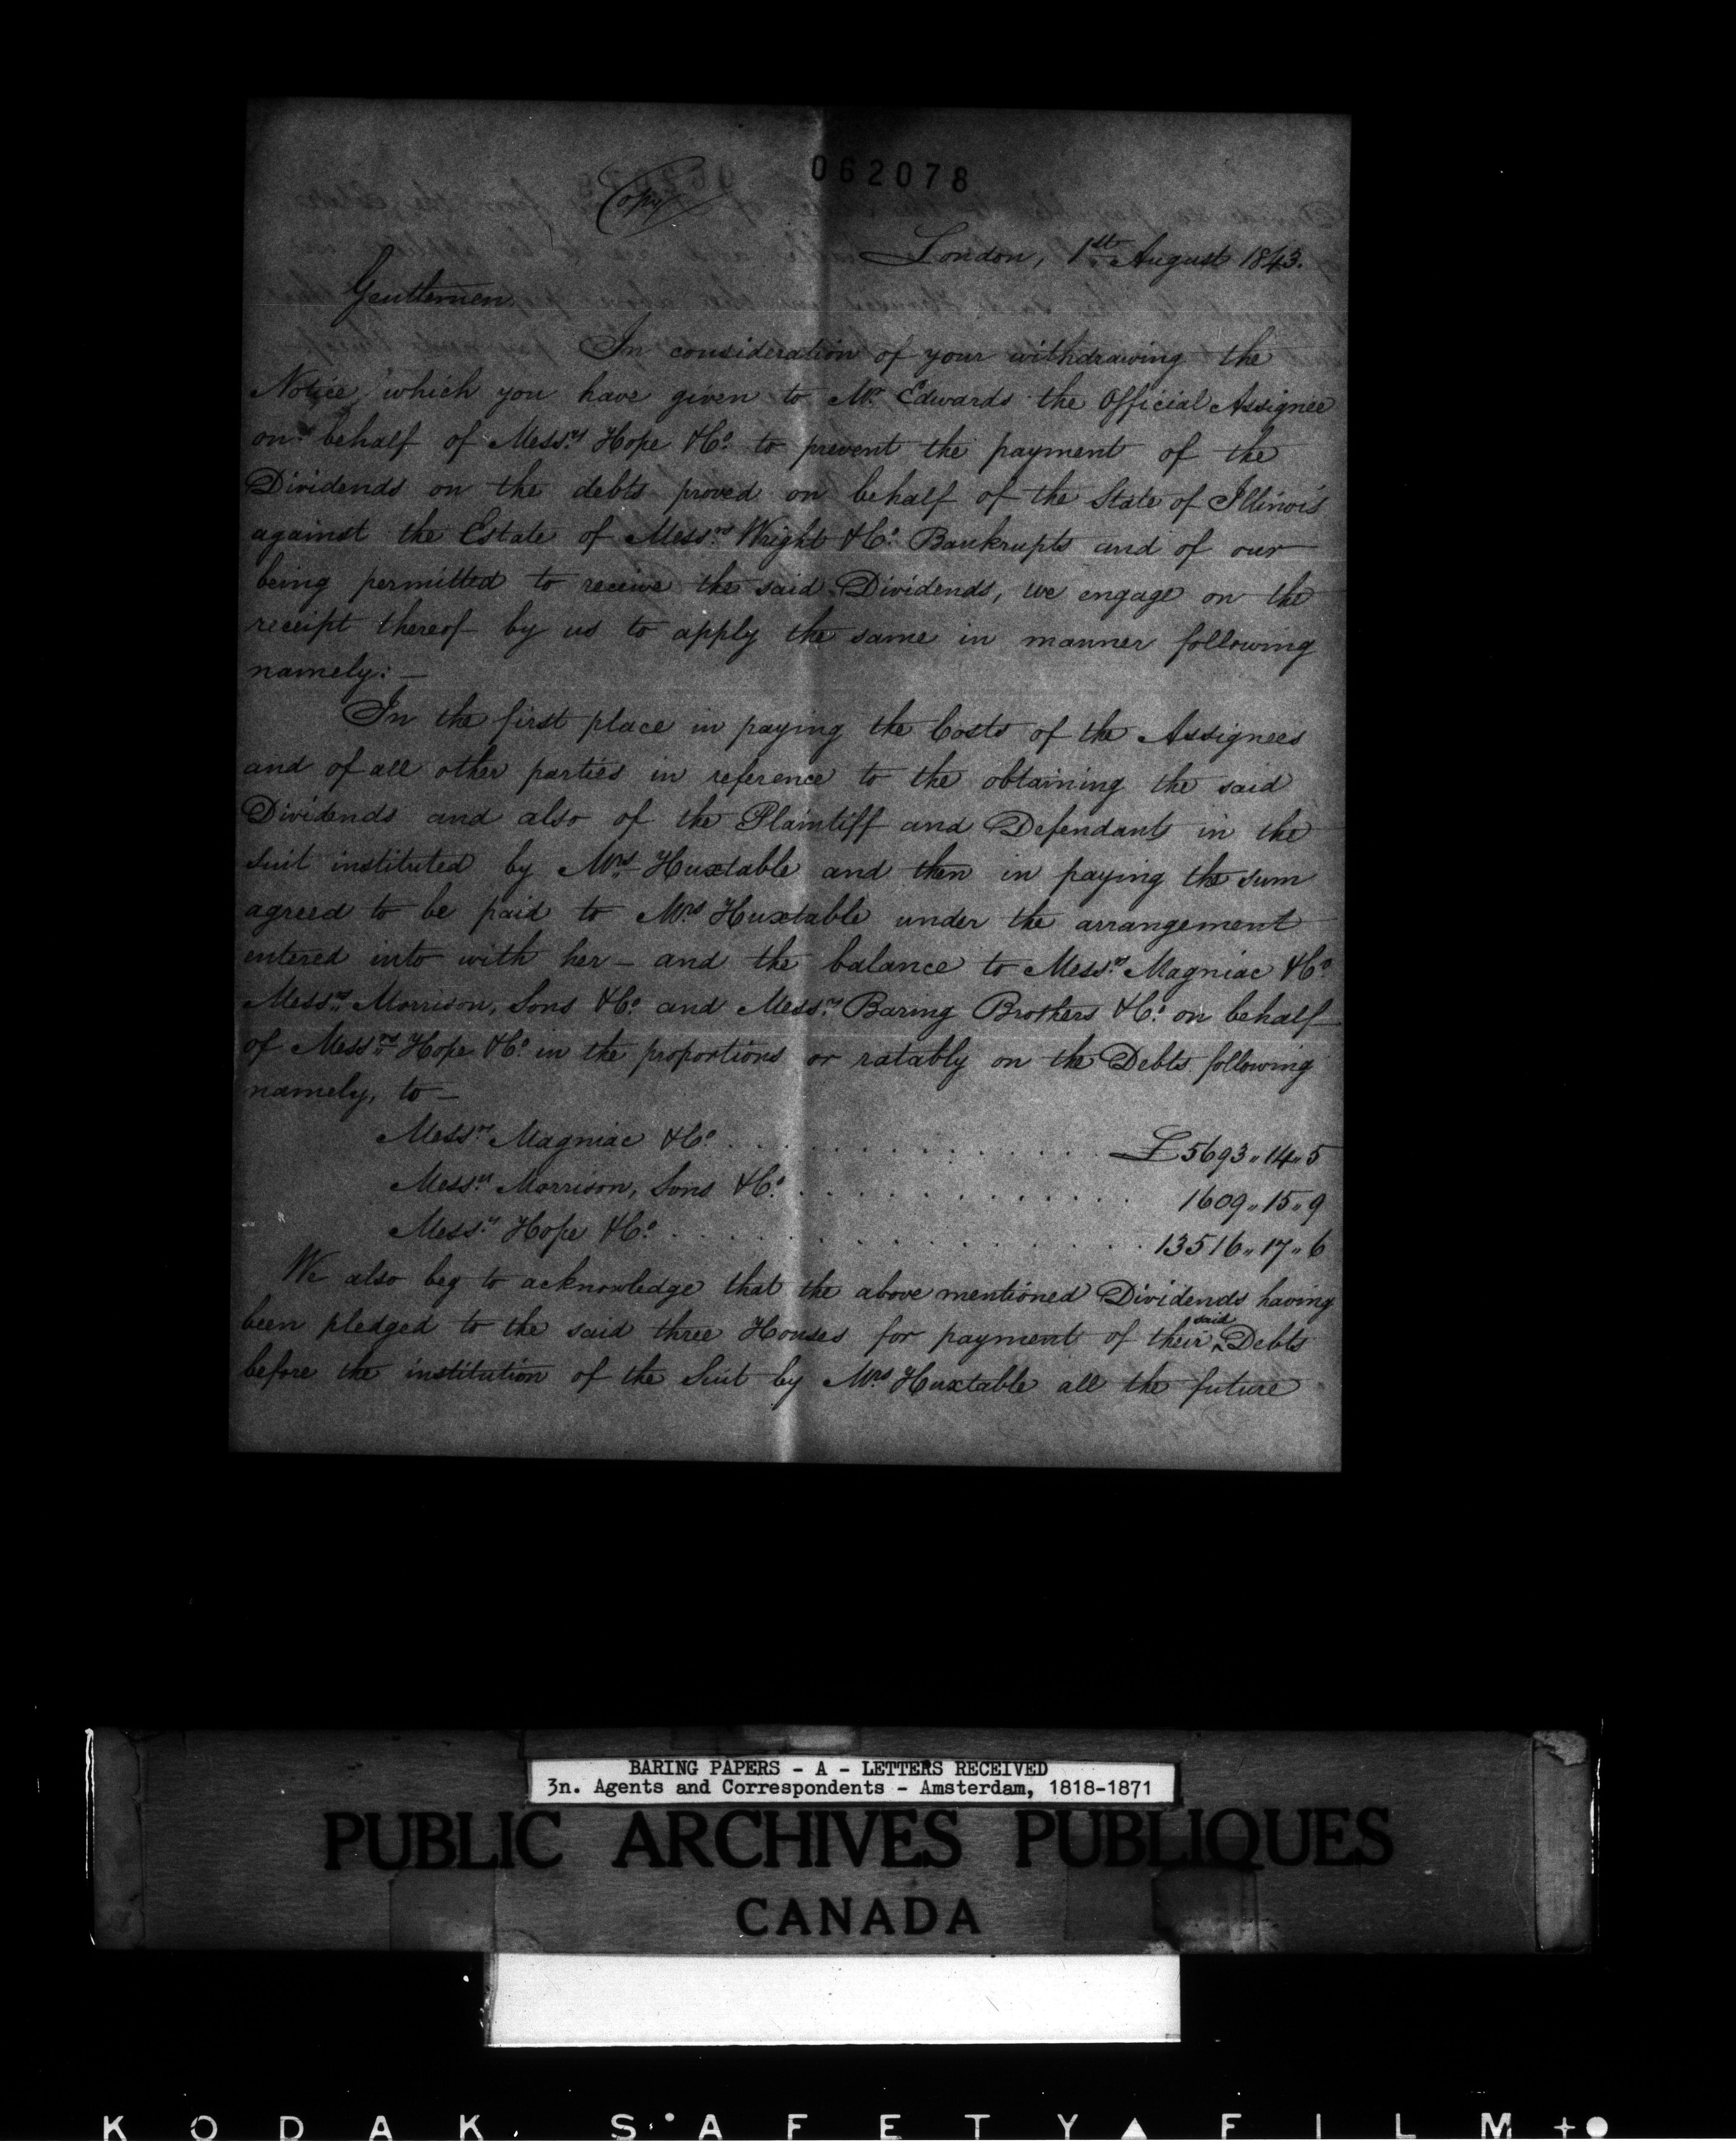 062078
Copy
London, 1st August 1843.
Gentlemen
In consideration of your withdrawing the
Notice which you have given to Mr Edwards the Official Assignee
on behalf of Messrs Hope & Co. to prevent the payment of the
Dividends on the debts proved on behalf of the State of Illinois
against the Estate of Messrs Wright & Co. Bankrupts and of our
being permitted to receive the said Dividends, we engage on the
receipt thereof by us to apply the same in manner following
namely: —
In the first place in paying the Costs of the Assignees
and of all other parties in reference to the obtaining the said
Dividends and also of the Plaintiff and Defendants in the
Suit instituted by Mrs Huxtable and then in paying the sum
agreed to be paid to Mrs Huxtable under the arrangement
entered into with her — and the balance to Messrs Magniac & Co.
Messrs Morrison, Sons & Co. and Messrs Baring Brothers & Co. on behalf
of Messrs Hope & Co. in the proportions or ratably on the Debts following
namely, to —
Messrs Magniac & Co. . . . . . . . . . . . . . . £5693 " 14 " 5
Messrs Morrison, Sons & Co. . . . . . . . . . . . . . 1609 " 15 " 9
Messrs Hope & Co. . . . . . . . . . . . . . . . 13516 " 17 " 6
We also beg to acknowledge that the above mentioned Dividends having
been pledged to the said three Houses for payment of their said Debts
before the institution of the Suit by Mrs Huxtable all the future
BARING PAPERS - A - LETTERS RECEIVED
3n. Agents and Correspondents - Amsterdam, 1818-1871
PUBLIC ARCHIVES PUBLIQUES
CANADA
KODAK SAFETY▲FILM+●